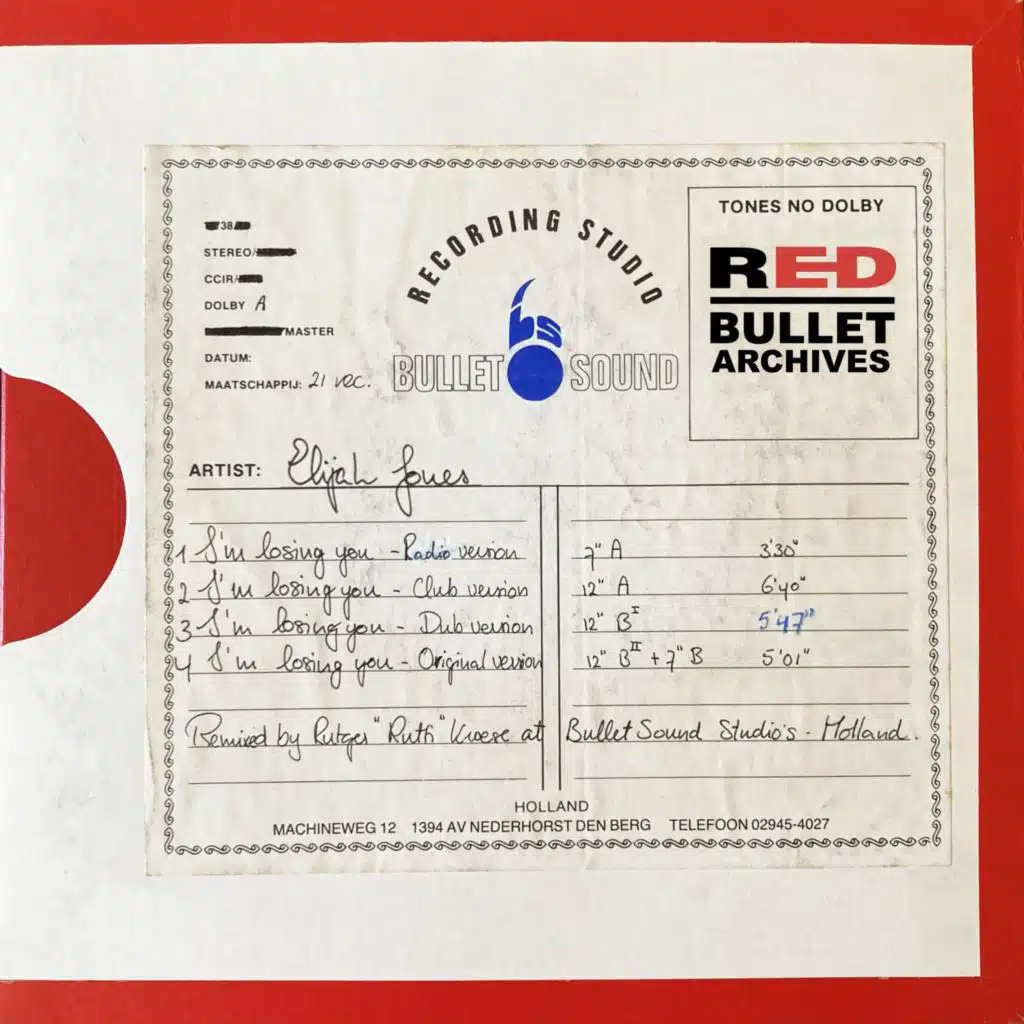 38
STEREO/
CCIR/
DOLBY A
MASTER
DATUM:
MAATSCHAPPIJ: 21 rec.
RECORDING STUDIO
bs
BULLET SOUND
TONES NO DOLBY
RED
BULLET
ARCHIVES
ARTIST: Elijah Jones
1 I'm losing you - Radio version 7" A 3'30"
2 I'm losing you - Club version 12" A 6'40"
3 I'm losing you - Dub version 12" B I 5'47"
4 I'm losing you - Original version 12" B II + 7" B 5'01"
Remixed by Rutger "Ruth" Kroese at Bullet Sound Studio's - Holland.
HOLLAND
MACHINEWEG 12 1394 AV NEDERHORST DEN BERG TELEFOON 02945-4027